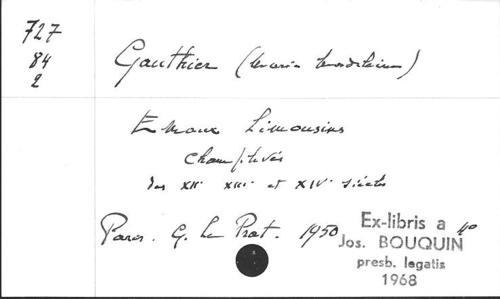 727
84
2
Gauthier (Marie Madeleine)
Emaux Limousins
champlevés
des XIIe XIIIe et XIVe siècles
Paris. G. Le Prat. 1950 4o
Ex-libris a
Jos. BOUQUIN
presb. legatis
1968